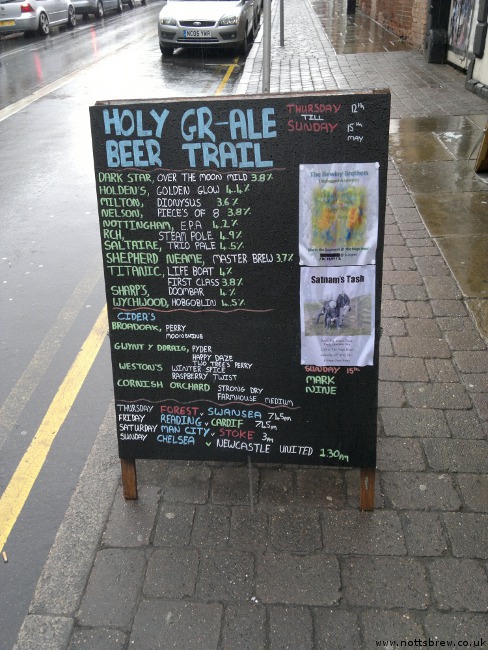 NC05 YWR
HOLY GR-ALE
BEER TRAIL
THURSDAY 12th
TILL
SUNDAY 15th
MAY
DARK STAR, OVER THE MOON MILD 3.8%
HOLDEN'S, GOLDEN GLOW 4.4%
MILTON, DIONYSUS 3.6%
NELSON, PIECE'S OF 8 3.8%
NOTTINGHAM, E.P.A 4.2%
RCH, STEAM POLE 4.9%
SALTAIRE, TRIO PALE 4.5%
SHEPHERD NEAME, MASTER BREW 3.7%
TITANIC, LIFE BOAT 4%
FIRST CLASS 3.8%
SHARP'S, DOOMBAR 4%
WYCHWOOD, HOBGOBLIN 4.5%
CIDER'S
BROADOAK, PERRY
MOONSHINE
GWYNT Y DDRAIG, PYDER
HAPPY DAZE
TWO TREE'S PERRY
WESTON'S WINTER SPICE
RASPBERRY TWIST
CORNISH ORCHARD STRONG DRY
FARMHOUSE MEDIUM
The Bewley Brothers
Satnam's Tash
SUNDAY 15th
MARK
NINE
THURSDAY FOREST v SWANSEA 7.45pm
FRIDAY READING v CARDIF 7.45pm
SATURDAY MAN CITY v STOKE 3pm
SUNDAY CHELSEA v NEWCASTLE UNITED 1.30pm
www.nottsbrew.co.uk